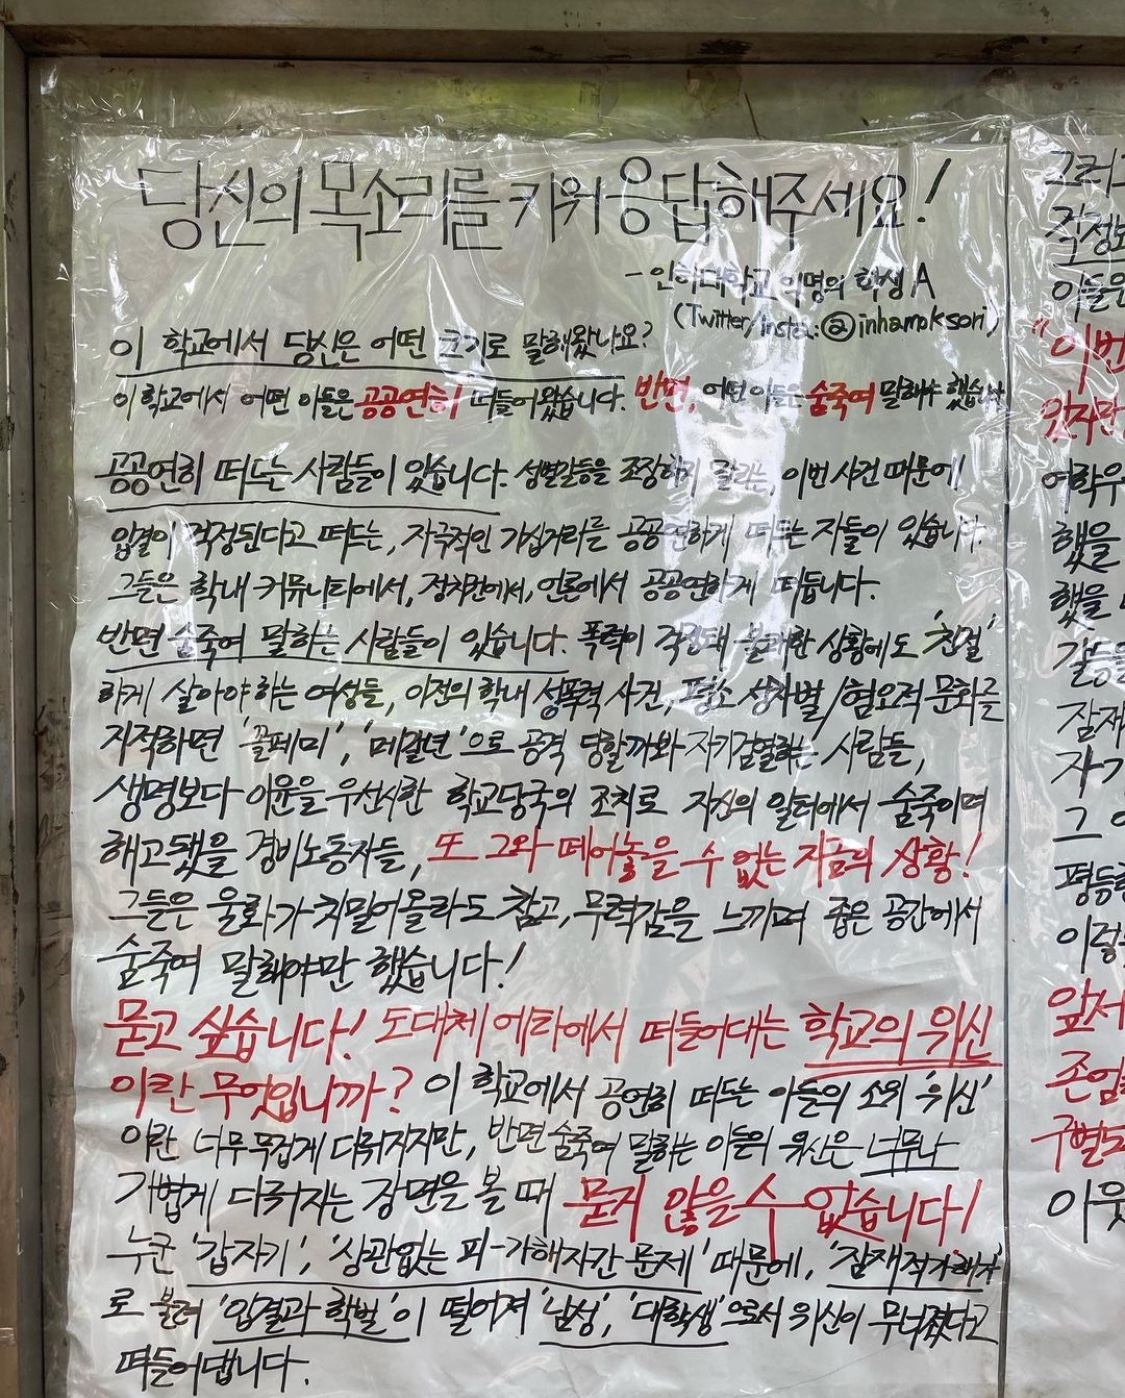 당신의 목소리를 키워 응답해주세요!
- 인하대학교 익명의 학생 A
(Twitter/insta:@inhamoksori)
이 학교에서 당신은 어떤 크기로 말해왔나요?
이 학교에서 어떤 이들은 공공연히 떠들어왔습니다. 반면, 어떤 이들은 숨죽여 말해야 했습니다
공공연히 떠드는 사람들이 있습니다. 성별갈등을 조장하지 말라는, 이번 사건 때문에
입결이 걱정된다고 떠드는, 자극적인 가십거리를 공공연하게 떠드는 자들이 있습니다.
그들은 학내 커뮤니티에서, 정치권에서, 언론에서 공공연하게 떠듭니다.
반면 숨죽여 말하는 사람들이 있습니다. 폭력이 걱정돼 불쾌한 상황에도 '친절'
하게 살아야 하는 여성들, 이전의 학내 성폭력 사건, 평소 성차별/혐오적 문화를
지적하면 '꼴페미', '메갈년'으로 공격 당할까봐 자기검열하는 사람들,
생명보다 이윤을 우선시한 학교당국의 조치로 자신의 일터에서 숨죽이며
해고됐을 경비노동자들, 또 그와 떼어놓을 수 없는 지금의 상황!
그들은 울화가 치밀어올라도 참고, 무력감을 느끼며 좁은 공간에서
숨죽여 말해야만 했습니다!
묻고 싶습니다! 도대체 에타에서 떠들어대는 학교의 위신
이란 무엇입니까? 이 학교에서 공연히 떠드는 이들의 소위 '위신'
이란 너무 무겁게 다뤄지지만, 반면 숨죽여 말하는 이들의 위신은 너무나
가볍게 다뤄지는 장면을 볼 때 묻지 않을 수 없습니다!
누군 '갑자기', '상관없는 피-가해자간 문제' 때문에, '잠재적가해자'
로 불려 '입결과 학벌'이 떨어져 '남성', '대학생'으로서 위신이 무너졌다고
떠들어댑니다.
이들은
"이번
했을
했을
갈등을
그
앞서